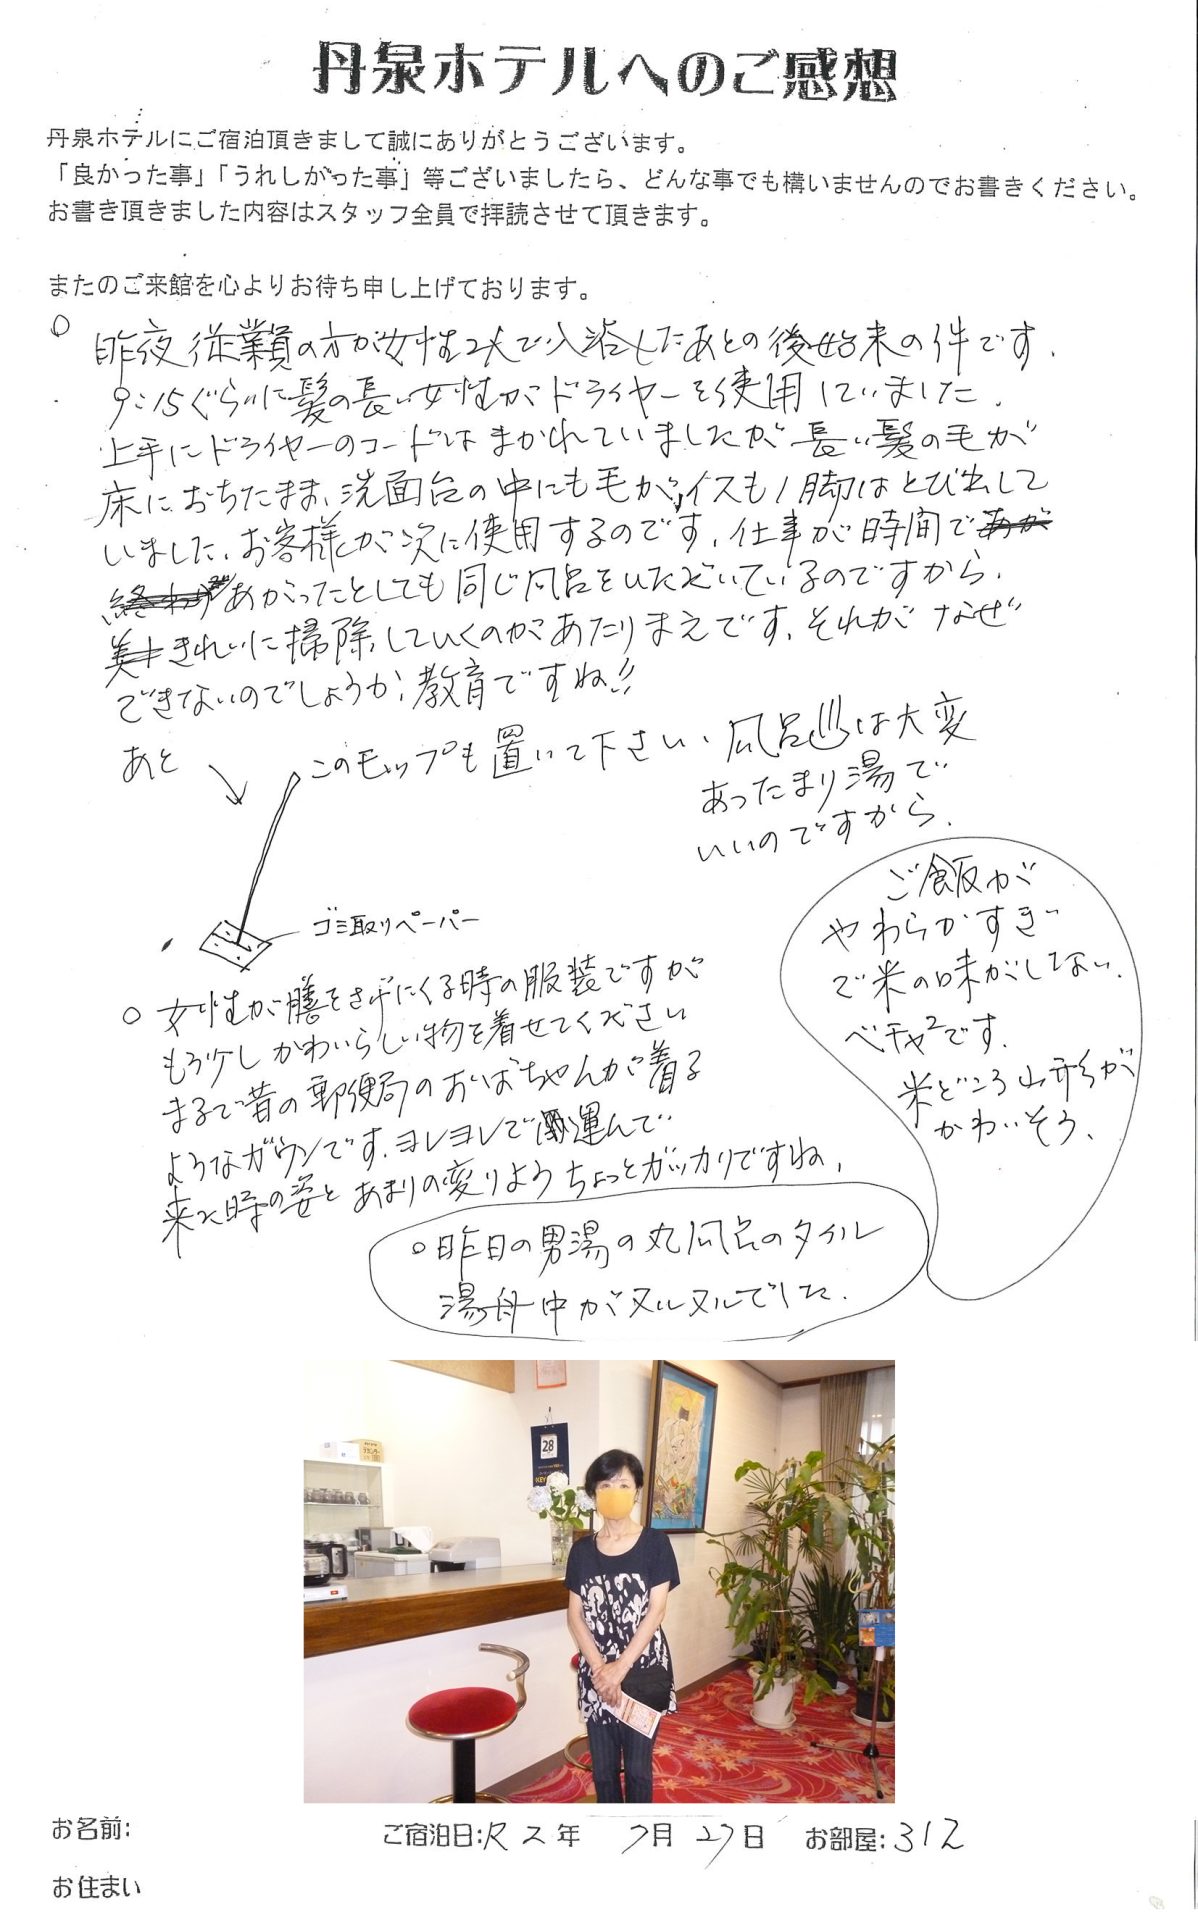 丹泉ホテルへのご感想
丹泉ホテルにご宿泊頂きまして誠にありがとうございます。
「良かった事」「うれしかった事」等ございましたら、どんな事でも構いませんのでお書きください。
お書き頂きました内容はスタッフ全員で拝読させて頂きます。
またのご来館を心よりお待ち申し上げております。
○ 昨夜従業員の方が女性2人で入浴したあとの後始末の件です.
9:15ぐらいに髪の長い女性がドライヤーを使用していました.
上手にドライヤーのコードはまかれていましたが長い髪の毛が
床におちたまま、洗面台の中にも毛が、イスも1脚はとび出して
いました、お客様が次に使用するのです、仕事が時間で
あがったとしても同じ風呂をいただいているのですから、
きれいに掃除していくのがあたりまえです、それがなぜ
できないのでしょうか、教育ですね!!
あと
このモップも置いて下さい、風呂♨は大変
あったまり湯で
いいのですから.
ゴミ取りペーパー
ご飯が
やわらかすぎ
で米の味がしない.
ベチャ²です.
米どころ山形が
かわいそう、
○ 女性が膳をさげにくる時の服装ですが
もう少しかわいらしい物を着せてください
まるで昔の郵便局のおばちゃんが着る
ようなガウンです.ヨレヨレで運んで
来た時の姿とあまりの変りようちょっとガッカリですね、
○昨日の男湯の丸風呂のタイル
湯舟中がヌルヌルでした.
28
お名前:
ご宿泊日:R2年 7月27日 お部屋:312
お住まい